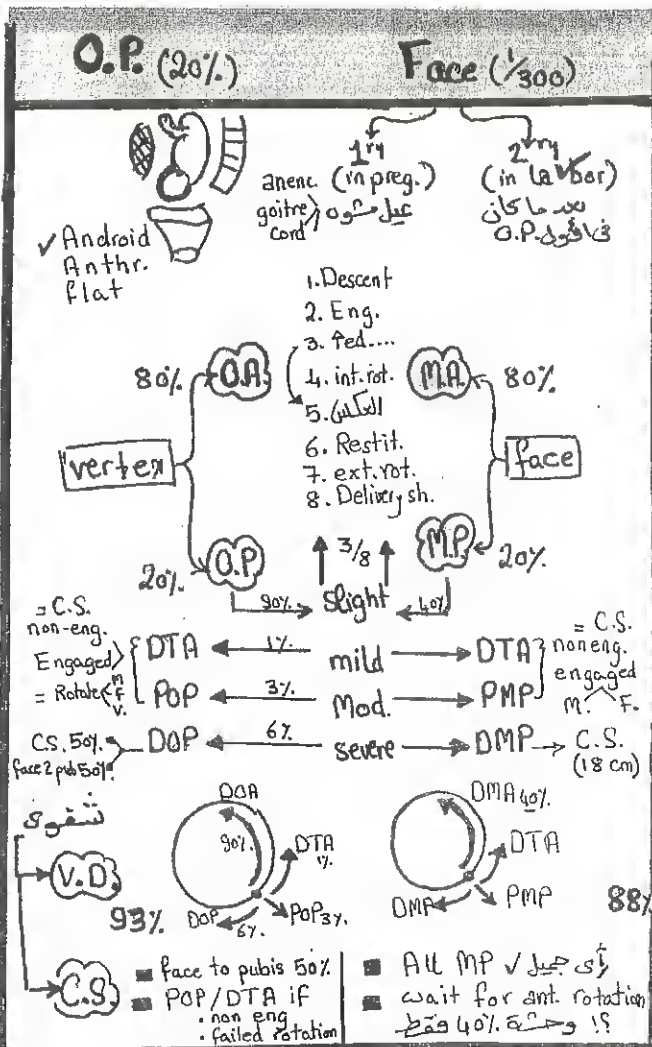 O.P. (20%)
Face (1/300)
✓ Android
Anthr.
flat
1ry
(in preg.)
anenc.
goitre
cord
عيل مشوه
2ry
(in labor)
بعد ما كان
O.P.
1. Descent
2. Eng.
3. ↑ed....
4. int. rot.
5. العكس
6. Restit.
7. ext. rot.
8. Delivery sh.
vertex
80%
O.A.
20%
O.P
face
M.A.
80%
M.P.
20%
3/8
90%
slight
40%
= C.S.
non-eng.
Engaged
= Rotate
M
F
V.
DTA
1%
mild
DTA
POP
3%
Mod.
PMP
= C.S.
non eng.
engaged
M. F.
C.S. 50%
face 2 pub 50%
DOP
6%
severe
DMP → C.S.
(18 cm)
V.D.
93%
DOA
90%
DTA
1%
POP 3%
DOP
6%
DMA 40%
DTA
PMP
DMP
88%
C.S.
■ face to pubis 50%
■ POP/DTA if
. non eng
. failed rotation
■ All MP ✓ رأى جميل
■ wait for ant. rotation
وحشة 40% فقط ؟!